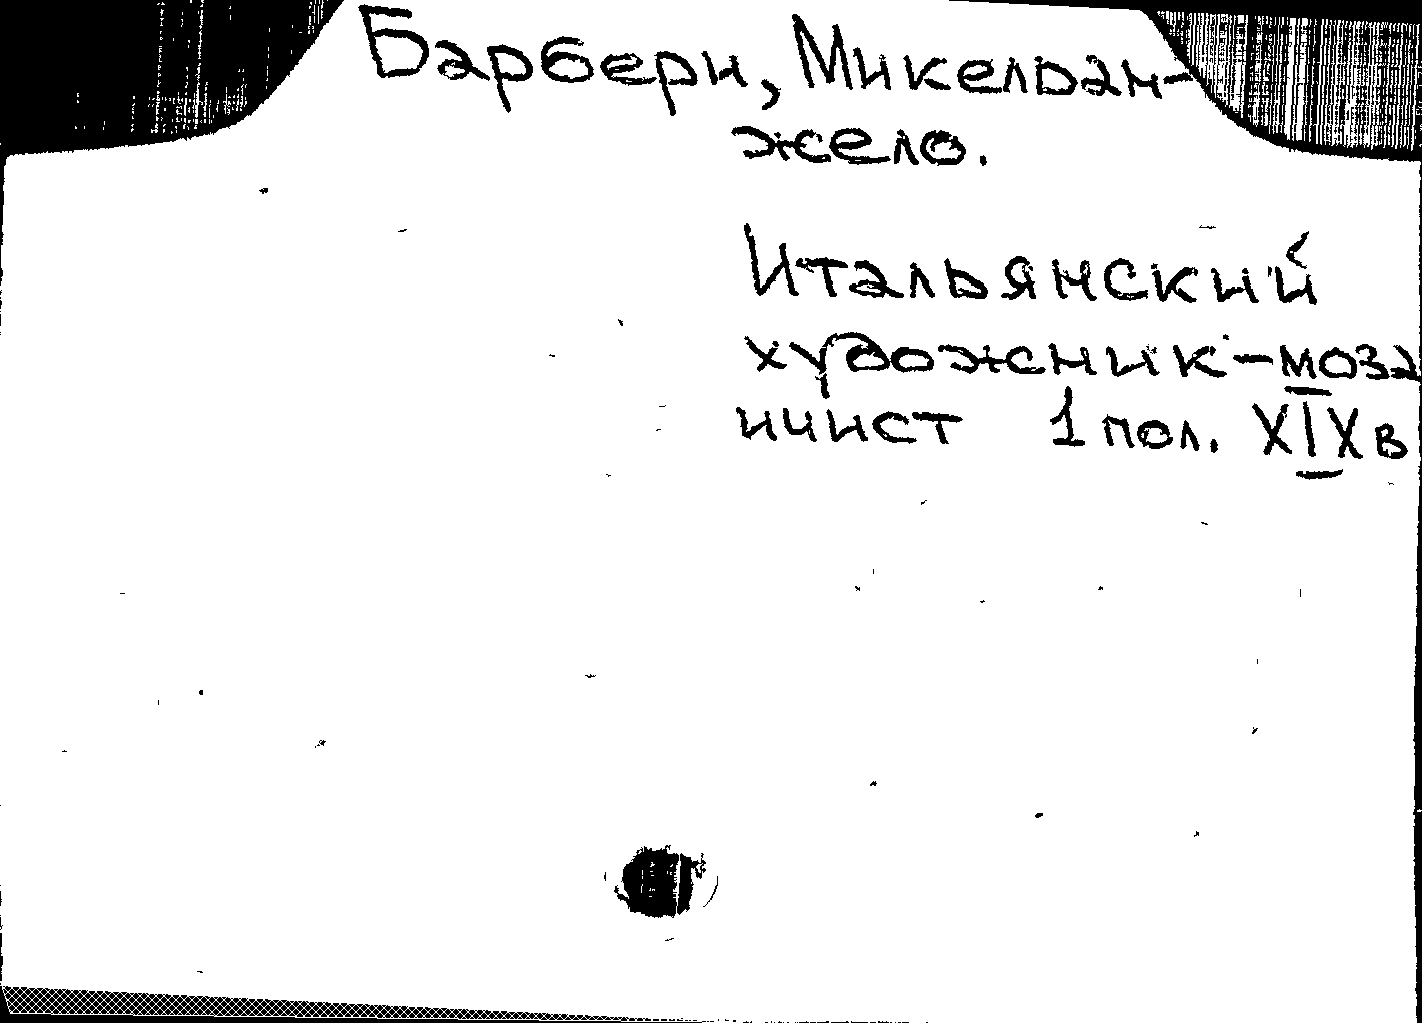 Барбери, Микельан-
жело.
Итальянский
художник-моза
ичист 1 пол. XIX в